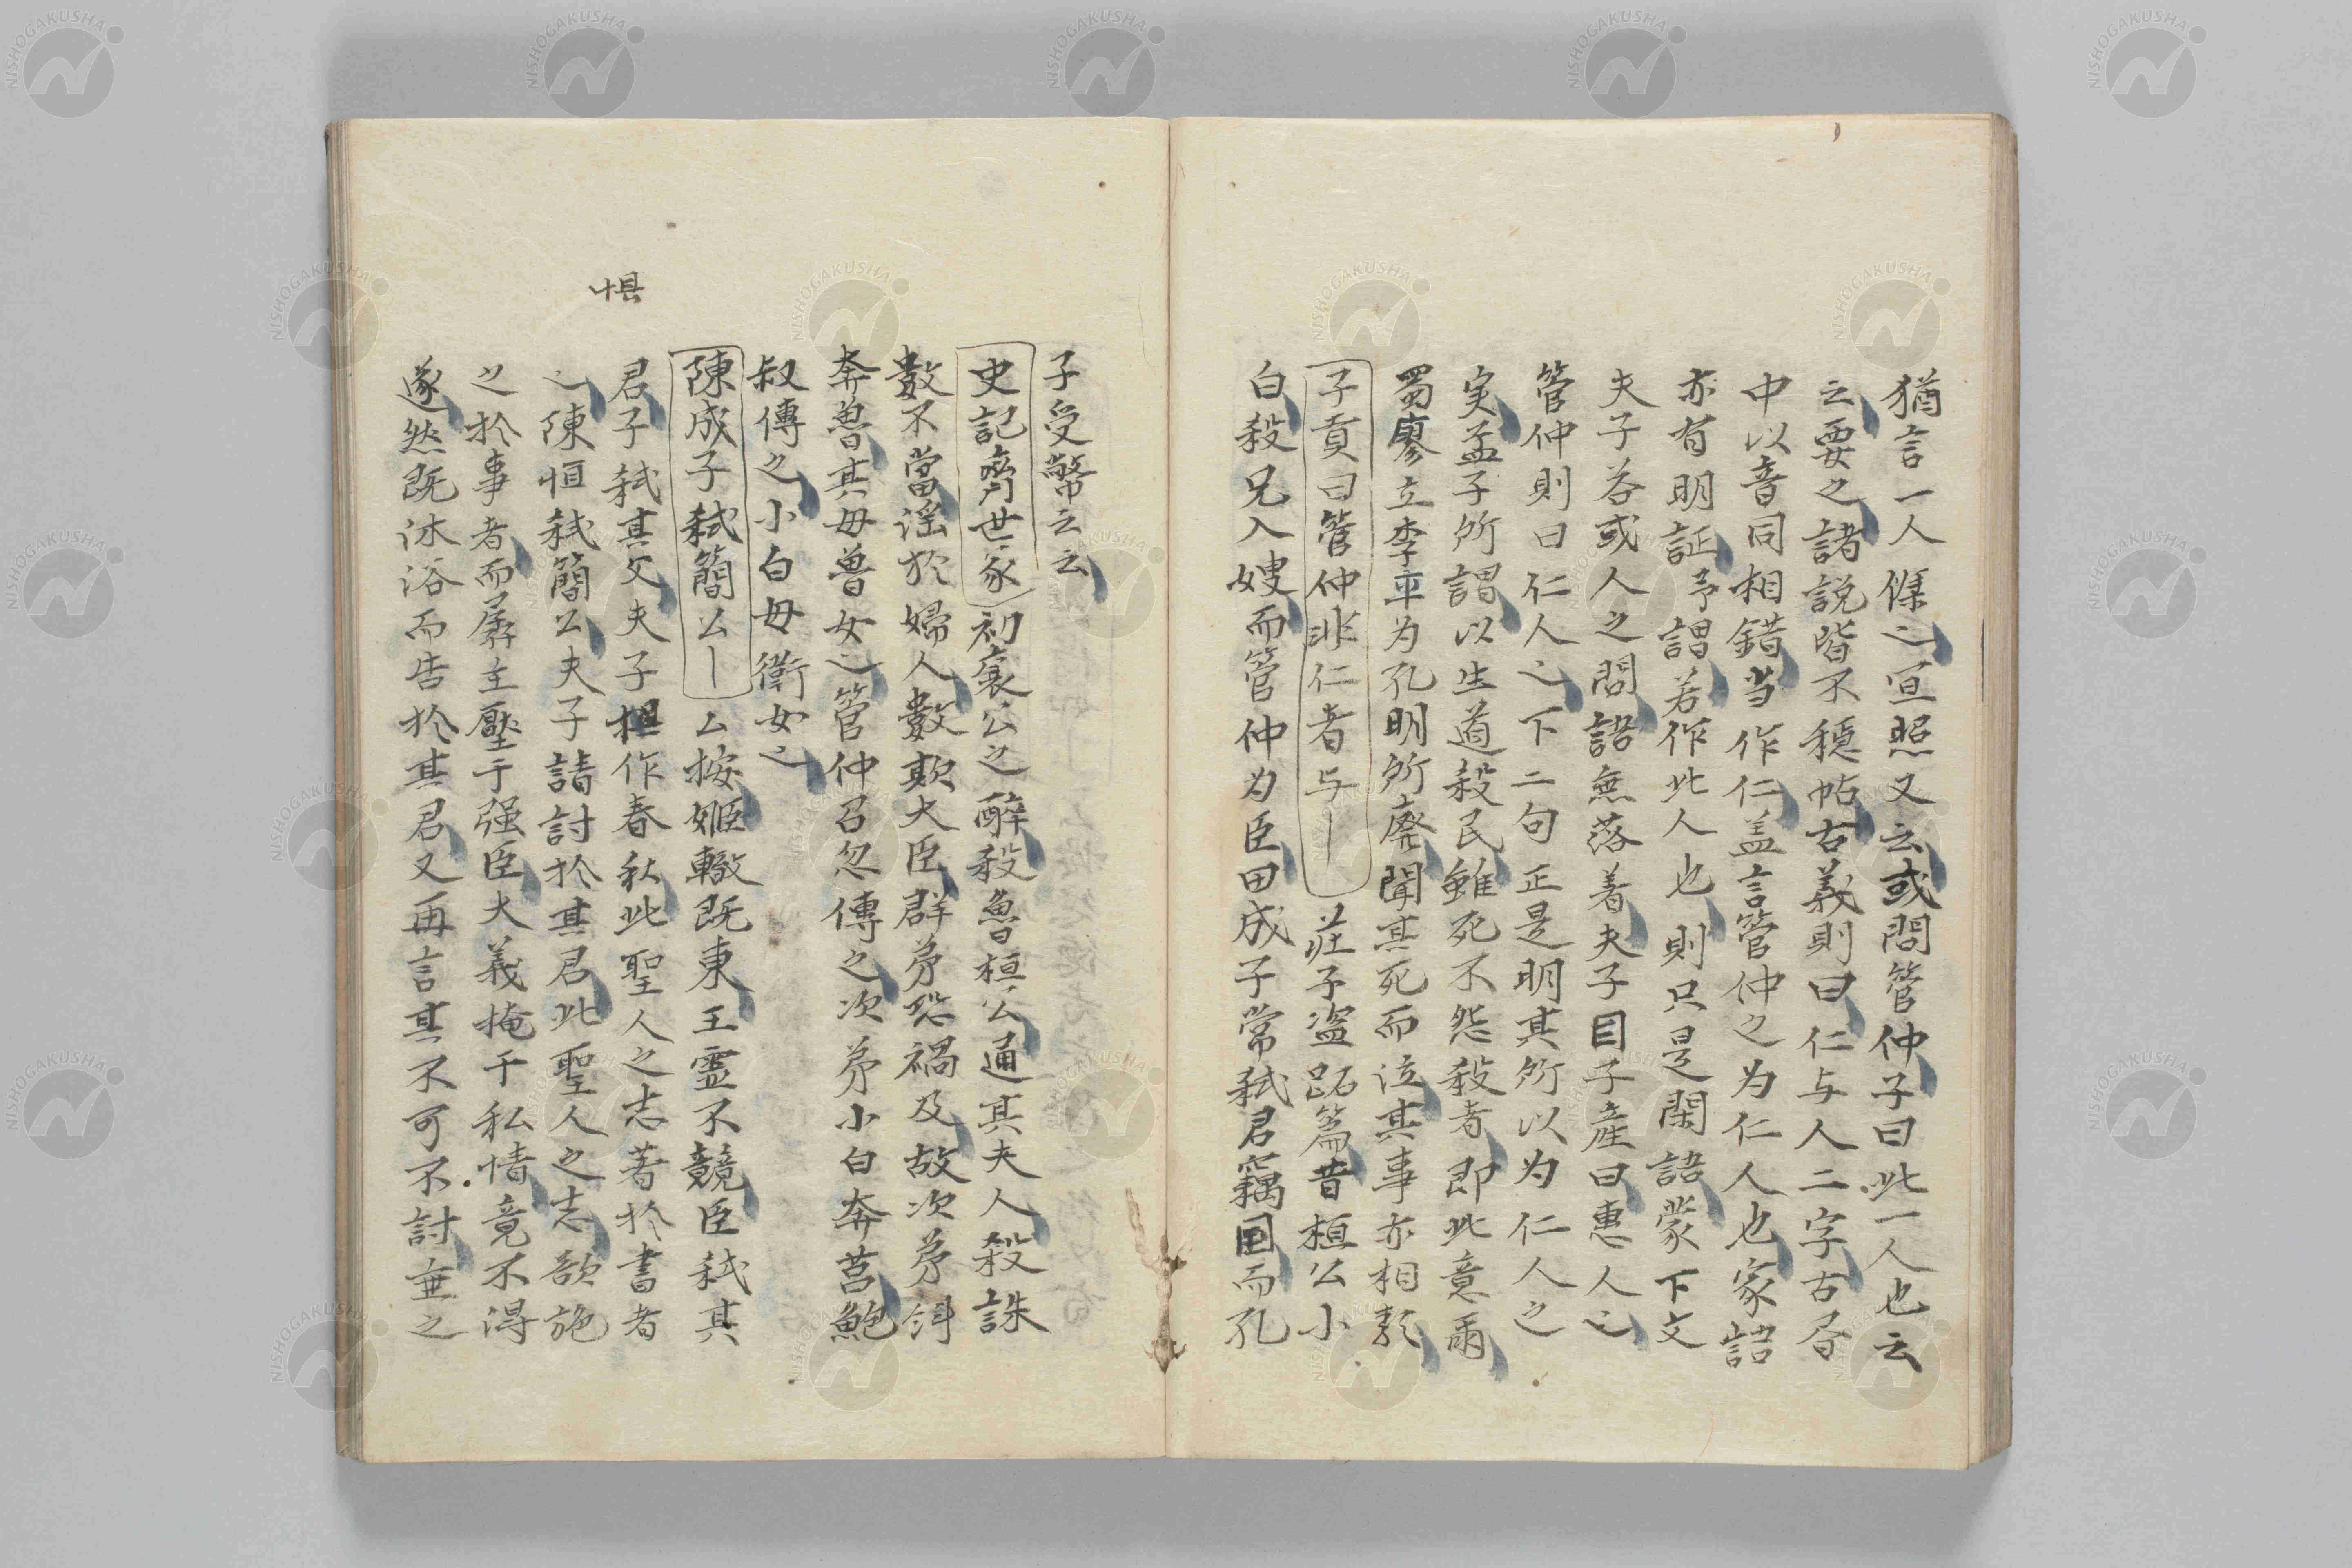 猶言一人僕之宜照又云或問管仲子曰此一人也云
云要之諸説皆不穏帖古義則曰仁与人二字古昏
中以音同相錯当作仁盖言管仲之为仁人也家語
亦有明証予謂若作此人也則只是閑語蒙下文
夫子答或人之問語無落着夫子目子産曰惠人之
管仲則曰仁人之下二句正是明其所以为仁人之
実孟子所謂以生道殺民雖死不怨殺者即此意爾
蜀廖立李平为孔明所廃聞其死而泣其事亦相類
子貢曰管仲非仁者与｜荘子盗跖篇昔桓公小
白殺兄入嫂而管仲为臣田成子常弑君竊国而孔
子受幣云云
史記齊世家初襄公之酔殺魯桓公通其夫人殺誅
數不當淫於婦人數欺大臣群弟恐禍及故次弟糾
奔魯其母魯女之管仲召忽傳之次弟小白奔莒鮑
叔傳之小白母衛女之
陳成子弑簡公｜ム按姫轍既東王霊不競臣弑其
君子弑其父夫子担作春秋此聖人之志著於書者
之陳恒弑簡公夫子請討於其君此聖人之志欲施
之於事者而孱主壓于强臣大義掩于私情竟不得
遂然既沐浴而告於其君又再言其不可不討並之
惧
NISHOGAKUSHA